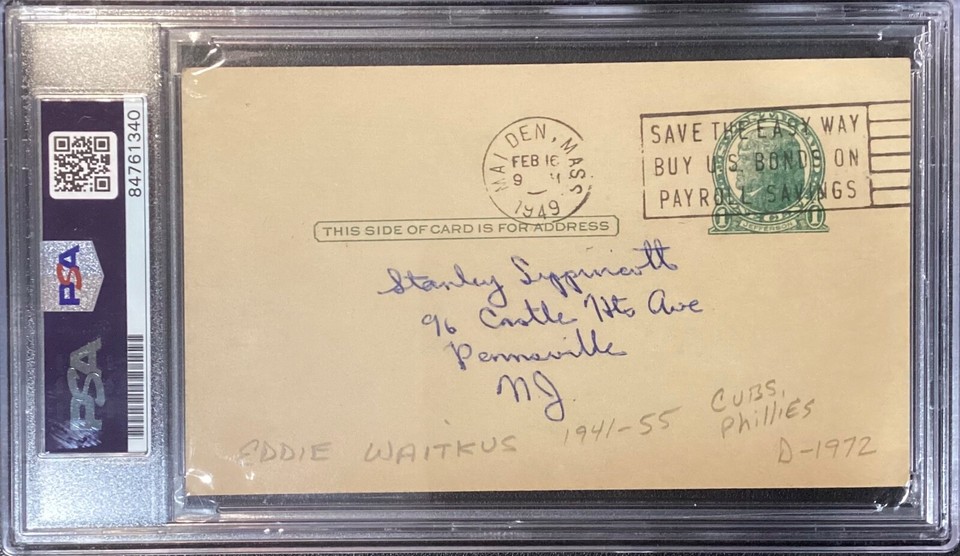 84761340
PSA
PSA
MALDEN, MASS
FEB 16
9
1949
SAVE THE EASY WAY
BUY U.S. BONDS ON
PAYROLL SAVINGS
1 JEFFERSON 1
THIS SIDE OF CARD IS FOR ADDRESS
Stanley Lippincott
96 Castle Hts Ave
Pennsville
NJ.
EDDIE WAITKUS 1941-55 CUBS,
PHILLIES
D-1972